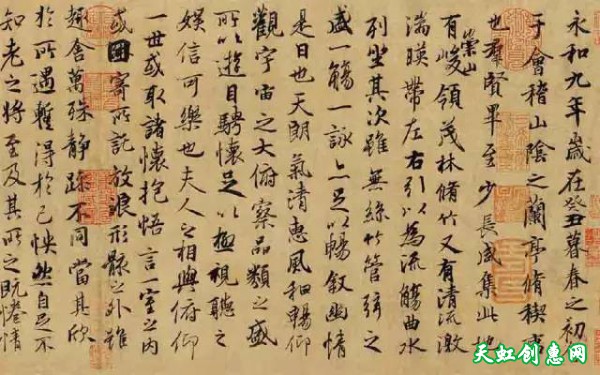 永和九年歲在癸丑暮春之初
于會稽山陰之蘭亭脩稧事
也羣賢畢至少長咸集此地
有崇山峻領茂林脩竹又有清流激
湍暎帶左右引以為流觴曲水
列坐其次雖無絲竹管弦之
盛一觴一詠亦足以暢敘幽情
是日也天朗氣清惠風和暢仰
觀宇宙之大俯察品類之盛
所以遊目騁懷足以極視聽之
娛信可樂也夫人之相與俯仰
一世或取諸懷抱悟言一室之內
或因寄所託放浪形骸之外雖
趣舍萬殊靜躁不同當其欣
於所遇暫得於己怏然自足不
知老之將至及其所之既惓情
天虹创惠网